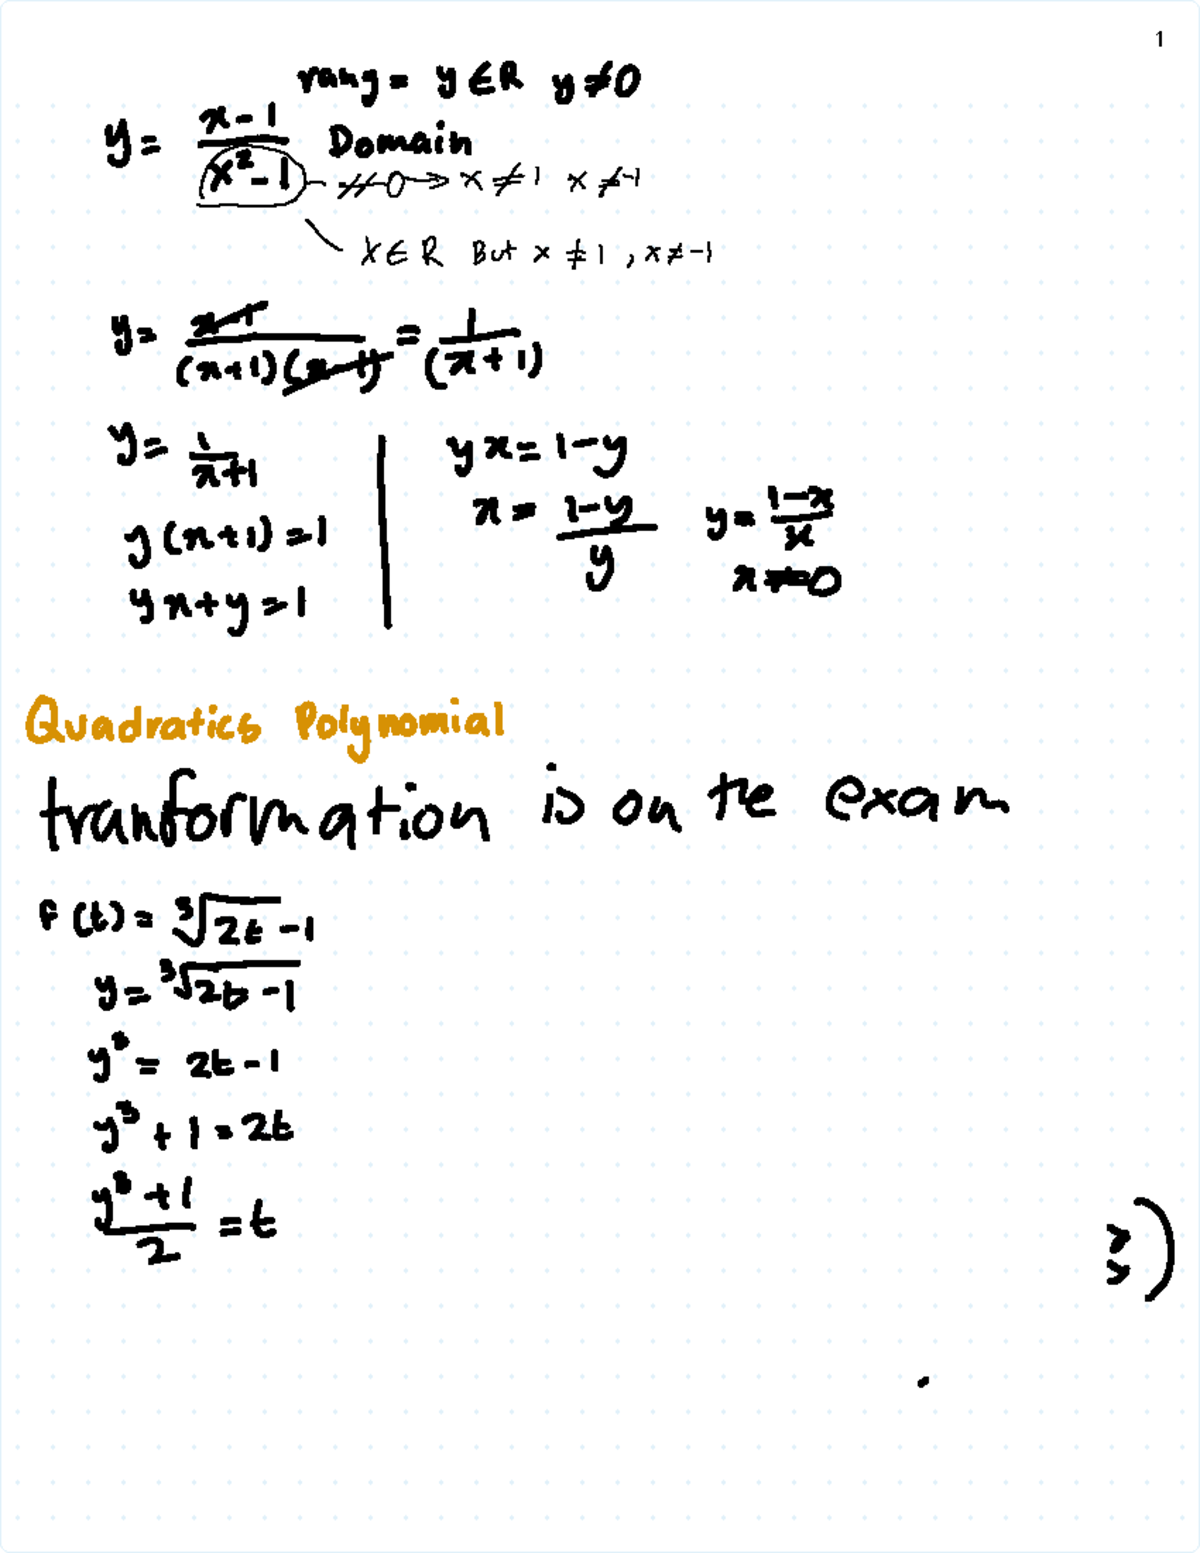 1
rang = y ∈ R y ≠ 0
y = (x - 1)/(x² - 1) Domain
≠ 0 → x ≠ 1 x ≠ -1
x ∈ R But x ≠ 1 , x ≠ -1
y = (x - 1)/((x+1)(x - 1)) = 1/(x + 1)
y = 1/(x+1)
y (x+1) = 1
yx + y = 1
yx = 1 - y
x = (1 - y)/y
y = (1 - x)/x
x ≠ 0
Quadratics Polynomial
tranformation is on the exam
F (t) = ³√2t - 1
y = ³√2t - 1
y³ = 2t - 1
y³ + 1 = 2t
(y³ + 1)/2 = t